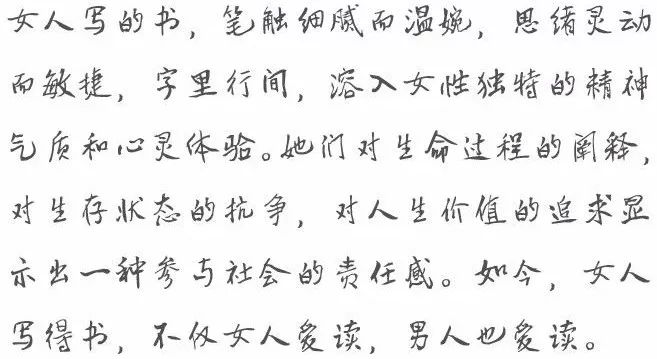 女人写的书，笔触细腻而温婉，思绪灵动
而敏捷，字里行间，溶入女性独特的精神
气质和心灵体验。她们对生命过程的阐释，
对生存状态的抗争，对人生价值的追求显
示出一种参与社会的责任感。如今，女人
写得书，不仅女人爱读，男人也爱读。